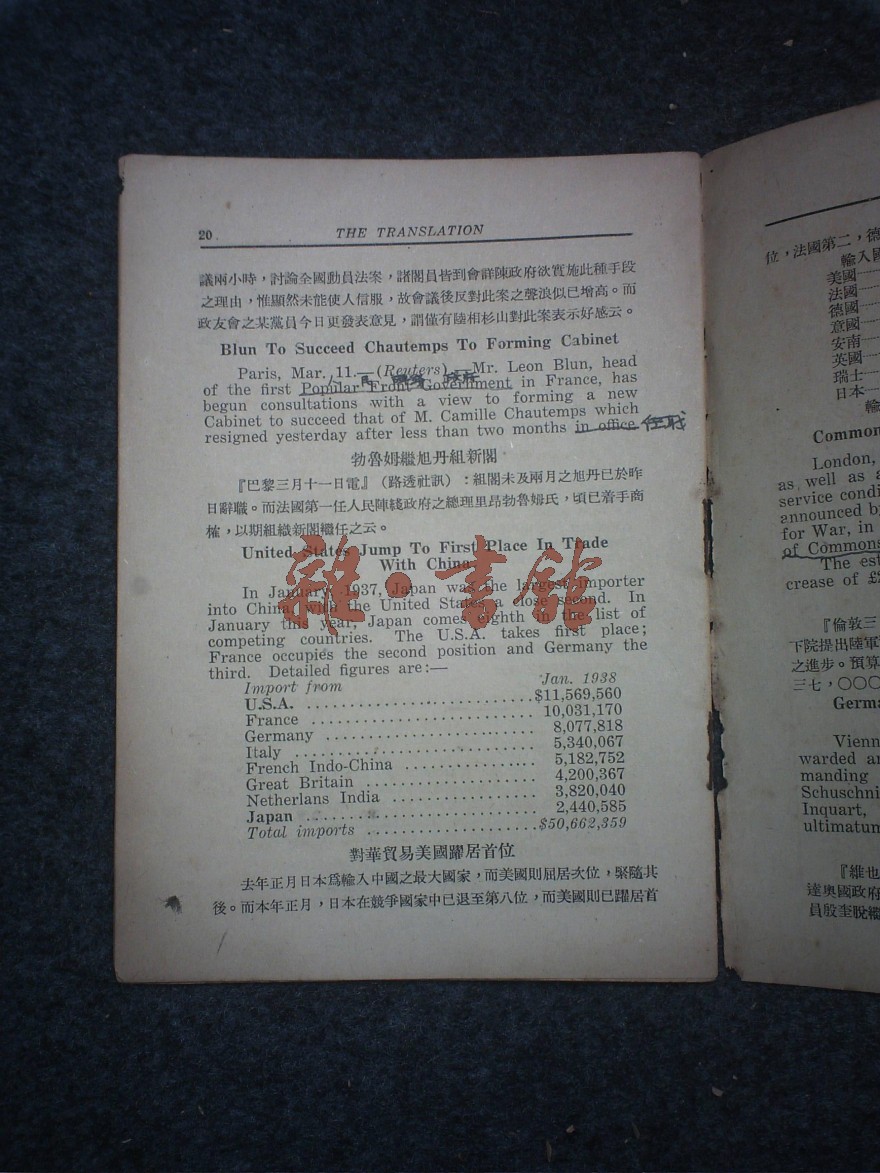 20
THE TRANSLATION
議兩小時，討論全國動員法案，諸閣員皆到會詳陳政府欲實施此種手段
之理由，惟顯然未能使人信服，故會議後反對此案之聲浪似已增高。而
政友會之某黨員今日更發表意見，謂僅有陸相杉山對此案表示好感云。
Blun To Succeed Chautemps To Forming Cabinet
Paris, Mar. 11.—(Reuters)—Mr. Leon Blun, head
of the first Popular Front Government in France, has
begun consultations with a view to forming a new
Cabinet to succeed that of M. Camille Chautemps which
resigned yesterday after less than two months in office
任職
勃魯姆繼旭丹組新閣
『巴黎三月十一日電』（路透社訊）：組閣未及兩月之旭丹已於昨
日辭職。而法國第一任人民陣綫政府之總理里昂勃魯姆氏，頃已着手商
榷，以期組織新閣繼任之云。
United States Jump To First Place In Trade
With China
In January, 1937, Japan was the largest importer
into China, with the United States a close second. In
January this year, Japan comes eighth in the list of
competing countries. The U.S.A. takes first place;
France occupies the second position and Germany the
third. Detailed figures are:—
Import from Jan. 1938
U.S.A. ..............................$11,569,560
France .............................. 10,031,170
Germany .............................. 8,077,818
Italy .............................. 5,340,067
French Indo-China ............... 5,182,752
Great Britain ..................... 4,200,367
Netherlans India .................. 3,820,040
Japan .............................. 2,440,585
Total imports .....................$50,662,359
對華貿易美國躍居首位
去年正月日本爲輸入中國之最大國家，而美國則屈居次位，緊隨其
後。而本年正月，日本在競爭國家中已退至第八位，而美國則已躍居首
位，法國第二，德
輸入國
美國
法國
德國
意國
安南
英國
瑞士
日本
輸
Common
London,
as well as a
service condi
announced by
for War, in
of Commons
The est
crease of £
『倫敦三
下院提出陸軍
之進步。預算
三七，〇〇〇
Germa
Vienn
warded an
manding
Schuschni
Inquart,
ultimatum
『維也
達奧國政府
員殷奎脫繼
雜·書館